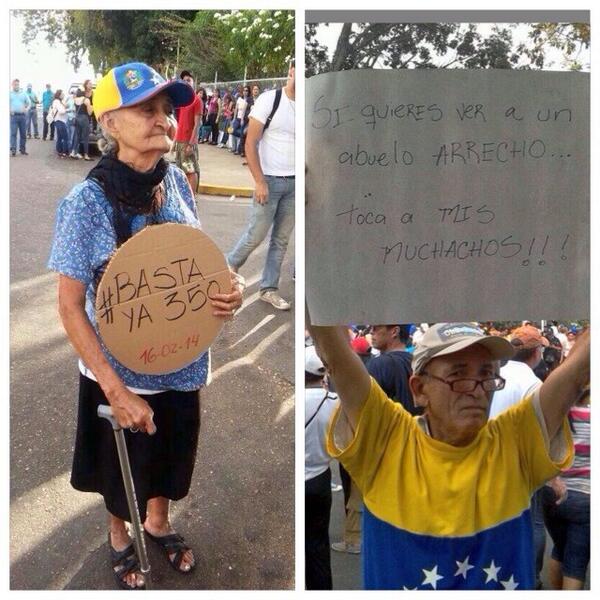 #BASTA
YA 350
16-02-14
SI quieres ver a un
abuelo ARRECHO...
toca a MIS
MUCHACHOS!!!